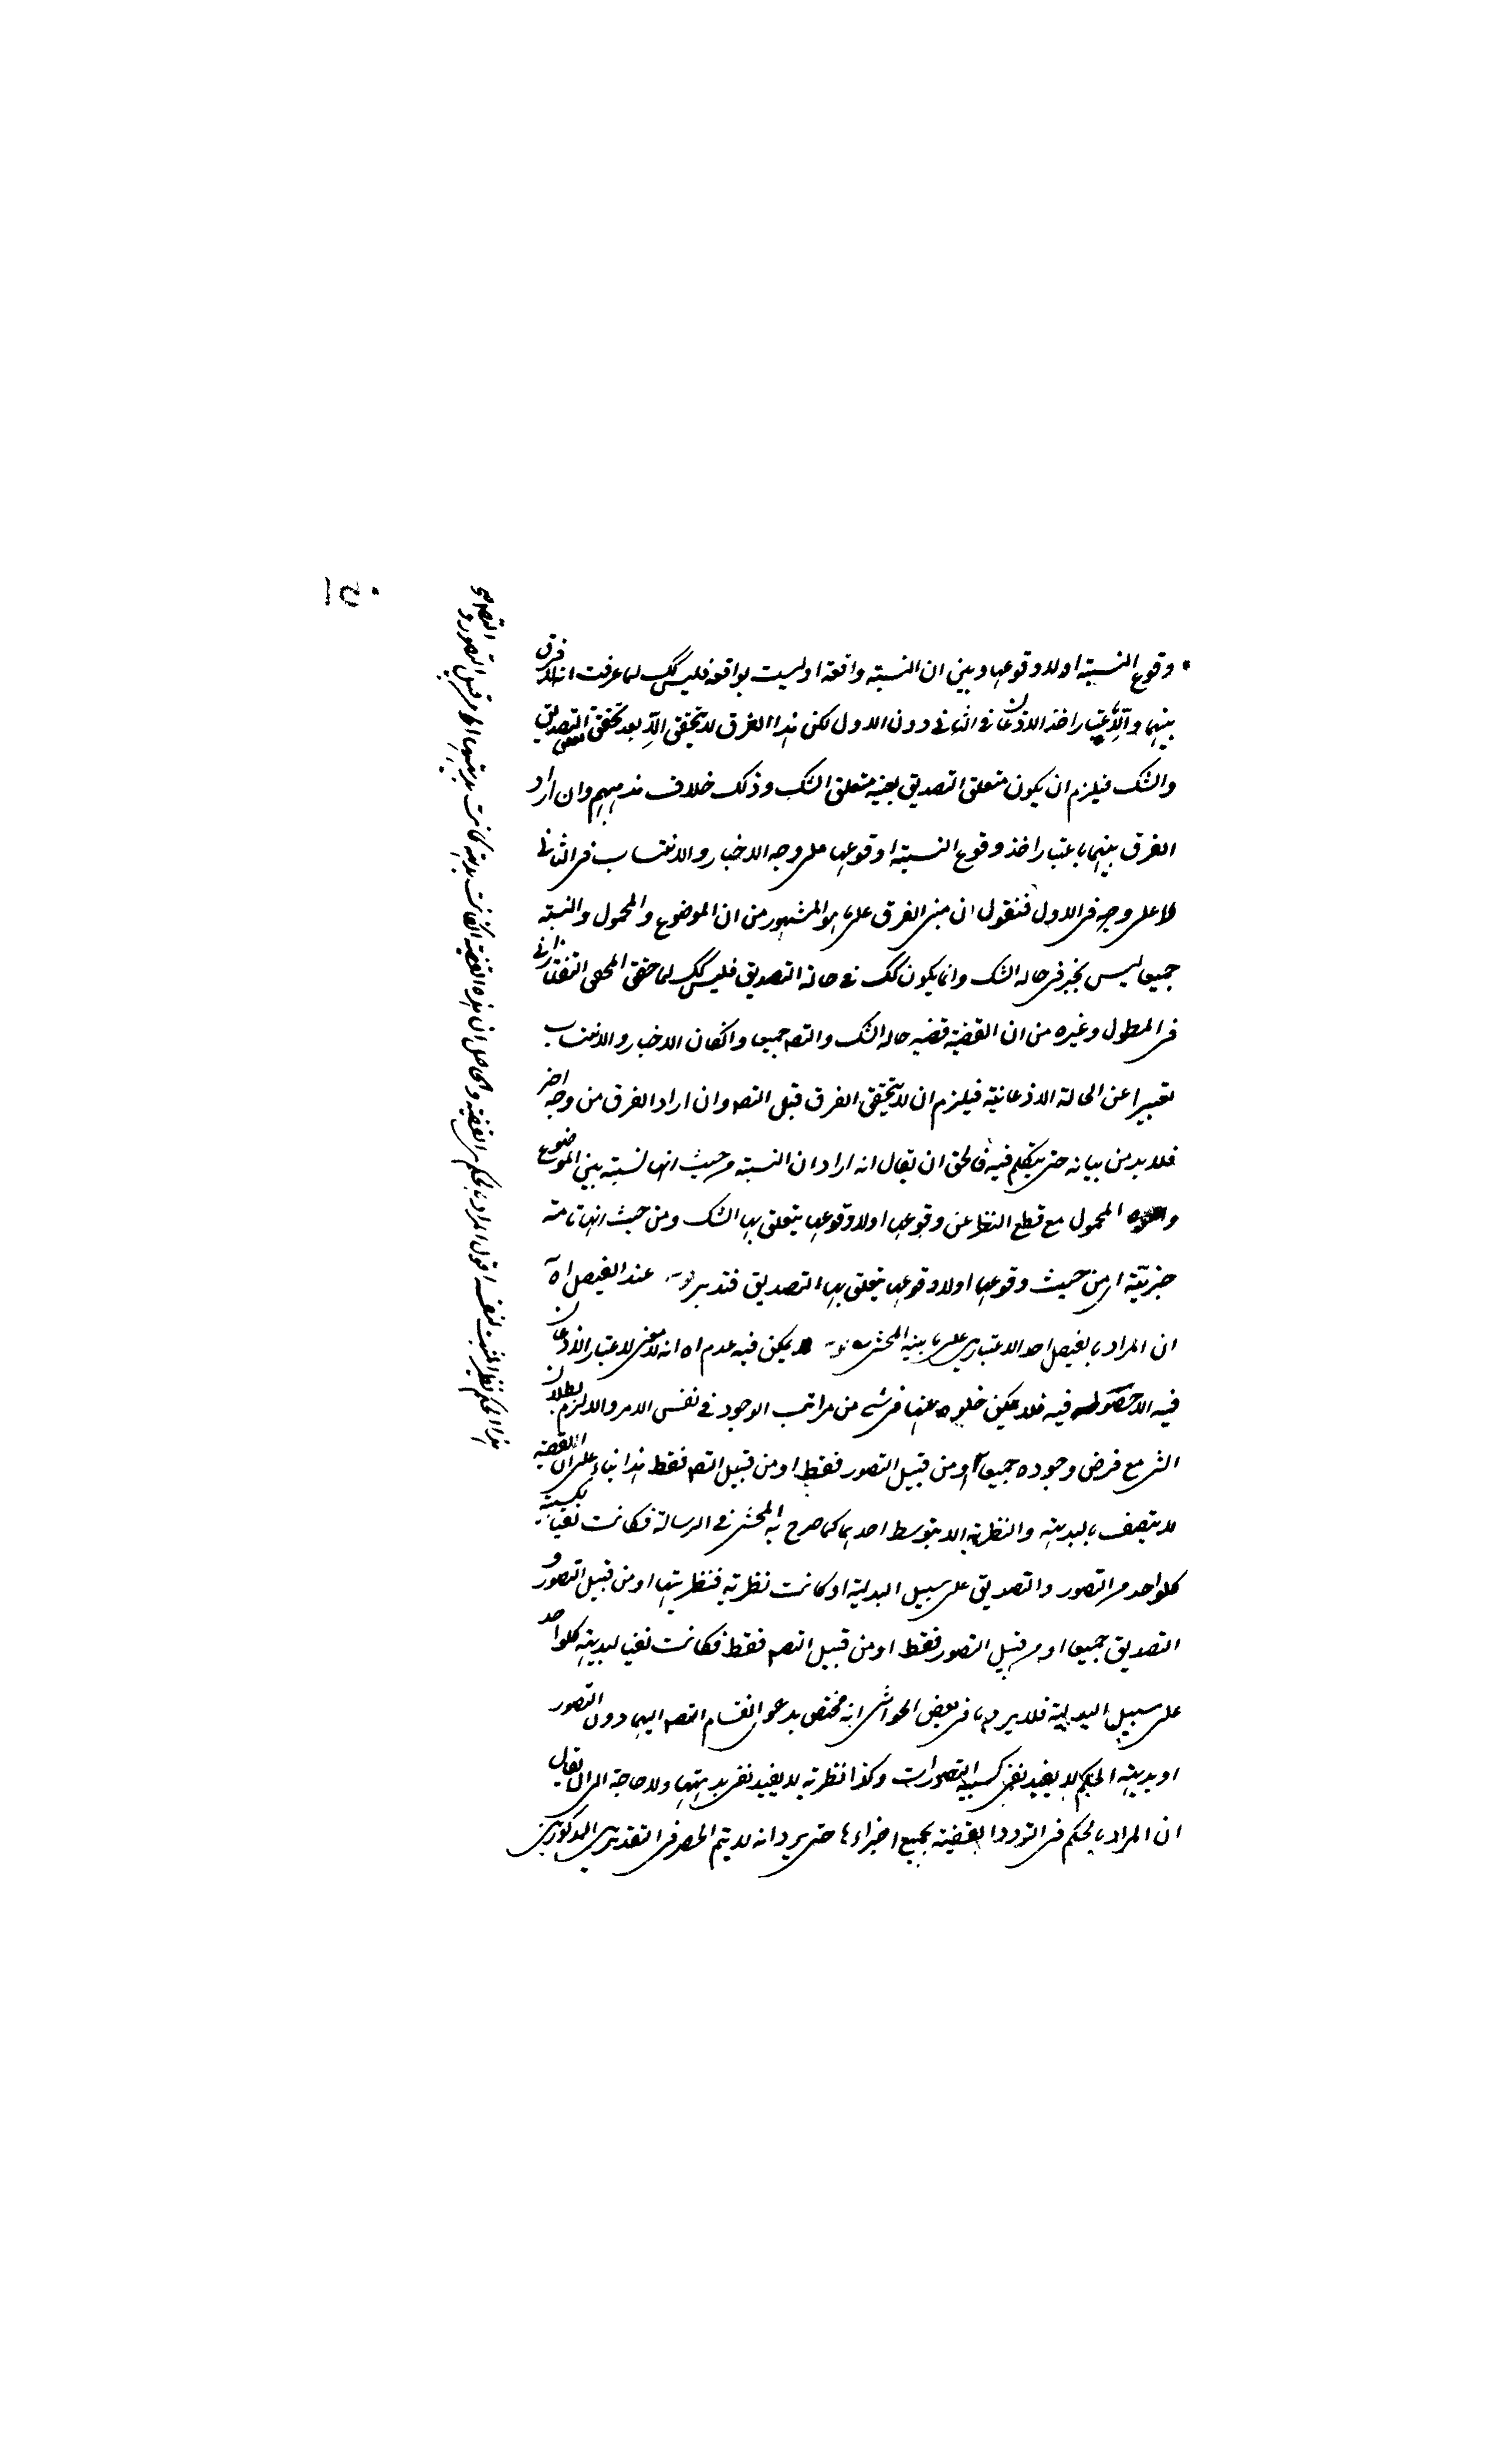 وقوع النسبة اولا وقوعها وبين ان النسبة واقعة او ليست بواقعة فليس كك لما عرفت انه لا فرق
بينهما والا باعتبار اخذ الاذعان في الثاني دون الاول لكن هذا الفرق لا يتحقق الا بعد تحقق التصديق
والشك فيلزم ان يكون متعلق التصديق بعينه متعلق الشك وذلك خلاف مذهبهم وان اراد
الفرق بينهما باعتبار اخذ وقوع النسبة او وقوعها على وجه الاخبار والانتساب في الثاني
لا على وجه في الاول فنقول ان مبنى الفرق على ما هو المشهور من ان الموضوع والمحمول والنسبة
جميعا ليس بخبر في حالة الشك وانما يكون كك في حالة التصديق فليس كك لما حقق المحقق التفتازاني
في المطول وغيره من ان القضية قضية حالة الشك والتصـ جميعا وانكان الاخبار والانتساب
تعبيرا عن الحالة الاذعانية فيلزم ان لا يتحقق الفرق قبل التصـ وان اراد الفرق من وجه اخر
فلا بد من بيانه حتى يتكلم فيه فالحق ان يقال انه اراد ان النسبة من حيث انها نسبة بين الموضوع
والمحمول مع قطع النظر عن وقوعها اولا وقوعها يتعلق بها الشك ومن حيث انها تامة
خبرية اى من حيث وقوعها اولا وقوعها يتعلق بها التصديق فتدبر قوله عند التفصيل اه
ان المراد بالتفصيل احد الاعتبارين على ما بينه المحشى قوله لا يمكن فيه عدم اه انه لا معنى لاعتبار الاذعان
فيه الا حصوله فيه فلا يمكن خلوه عنها في شئ من مراتب الوجود في نفس الامر والا لزم بطلان
الشئ مع فرض وجوده جميعا او من قبيل التصور فقط او من قبيل التصـ فقط هذا بناء على ان القضية
لا يتصف بالبديهة والنظرية الا بتوسط احديهما كما صرح به المحشى في الرسالة فكانت نفيا لكسبية
كل واحد من التصور والتصديق على سبيل البدلية او كانت نظرية فنظريتها او من قبيل التصور و
التصديق جميعا او من قبيل التصور فقط او من قبيل التصـ فقط فكانت نفيا لبديهة كل واحد
على سبيل البدلية فلا يرد ما في بعض الحواشى انه مختص بدعوى انقسام التصـ اليهما دون التصور
او بديهة الحكم لا يفيد نفى كسبية التصورات وكذا نظرية لا يفيد نفى بديهتها ولا حاجة الى ان يقال
ان المراد بالحكم في التردد القضية بجميع اجزائها حتى يرد انه لا يتم الحصر في التقديرين المذكورين
هذا الحكم نظر المثبت لنفسه اقول المراد بالحكم القضية والحاصل ان هذه القضية ان كانت بديهة كانت بديهتها اما من قبيل التصور و
التصـ